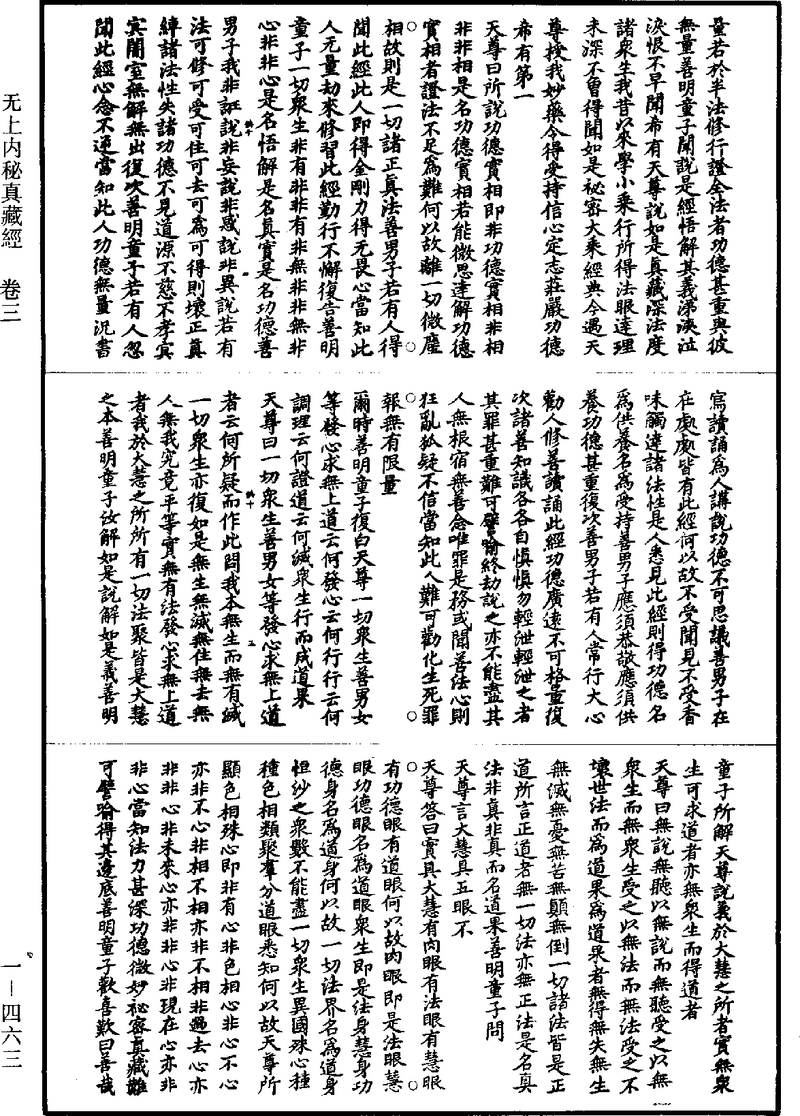 量若於半法修行證全法者功德甚重與彼
無量善明童子聞說是經悟解其義涕淚泣
淚恨不早聞希有天尊說如是真藏深法度
諸眾生我昔以來學小乘行所得法眼達理
未深不曾得聞如是祕密大乘經典今遇天
尊授我妙藥令得受持信心定志莊嚴功德
希有第一
天尊曰所說功德實相即非功德實相非相
非非相是名功德實相若能微思達解功德
實相者證法不足為難何以故離一切微塵
相故則是一切諸正真法善男子若有人得
聞此經此人即得金剛力得无畏心當知此
人元量劫來修習此經勤行不懈復告善明
童子一切眾生非有非非有非無非非無非
心非非心是名悟解是名真實是名功德善
男子我非誑說非妄說非惑說非異說若有
法可修可受可住可去可為可得則壞正真
綷諸法性失諸功德不見道源不慈不孝宾
宾闇室無解無出復次善明童子若有人忽
聞此經心念不通當知此人功德無量況書
寫讀誦為人講說功德不可思議善男子在
在處處皆有此經何以故不受聞見不受香
味觸達諸法性是人悉見此經則得功德名
為供養名為受持善男子應須恭敬應須供
養功德甚重復次善男子若有人常行大心
勸人修善讀誦此經功德廣遠不可格量復
次諸善知識各各自慎慎勿輕泄輕泄之者
其罪甚重難可譬喻終劫說之亦不能盡其
人無根宿無善念唯罪是務或聞善法心則
狂亂狐疑不信當知此人難可勸化生死罪
報無有限量
爾時善明童子復白天尊一切眾生善男女
等發心求無上道云何發心云何行行云何
調理云何證道云何滅眾生行而成道果
天尊曰一切眾生善男女等發心求無上道
者云何所疑而作此問我本無生而無有滅
一切眾生亦復如是無生無滅無住無去無
人無我究竟平等實無有法發心求無上道
者我於大慧之所所有一切法聚皆是大慧
之本善明童子汝解如是說解如是義善明
童子所解天尊說義於大慧之所者實無眾
生可求道者亦無眾生而得道者
天尊曰無說無聽以無說而無聽受之以無
眾生而無眾生受之以無法而無法受之不
壞世法而為道果為道果者無得無失無生
無滅無憂無苦無顛無倒一切諸法皆是正
道所言正道者無一切法亦無正法是名真
法非真非真而名道果善明童子問
天尊言大慧具五眼不
天尊答曰實具大慧有肉眼有法眼有慧眼
有功德眼有道眼何以故肉眼即是法眼慧
眼功德眼名為道眼眾生即是法身慧身功
德身名為道身何以故一切法界名為道身
恒紗之眾數不能盡一切眾生異國殊心種
種色相類聚羣分道眼悉知何以故天尊所
顯色相殊心即非有心非色相心非心不心
亦非不心非相不相亦非不相非過去心亦
非非心非未來心亦非非心非現在心亦非
非心當知法力甚深功德微妙祕密真藏難
可譬喻得其邊底善明童子歡喜歎曰善哉
无上内秘真藏經　卷三
一—四六三